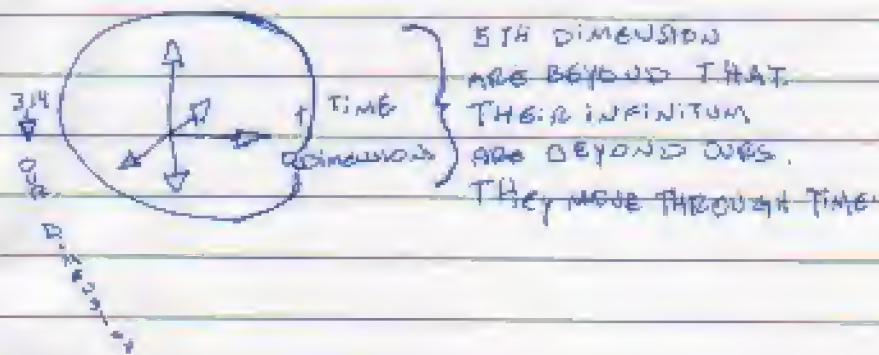 3/4
OUR
DIMENSION
+ TIME
DIMENSIONS
5TH DIMENSION
ARE BEYOND THAT.
THEIR INFINITUM
ARE BEYOND OURS.
THEY MOVE THROUGH TIME